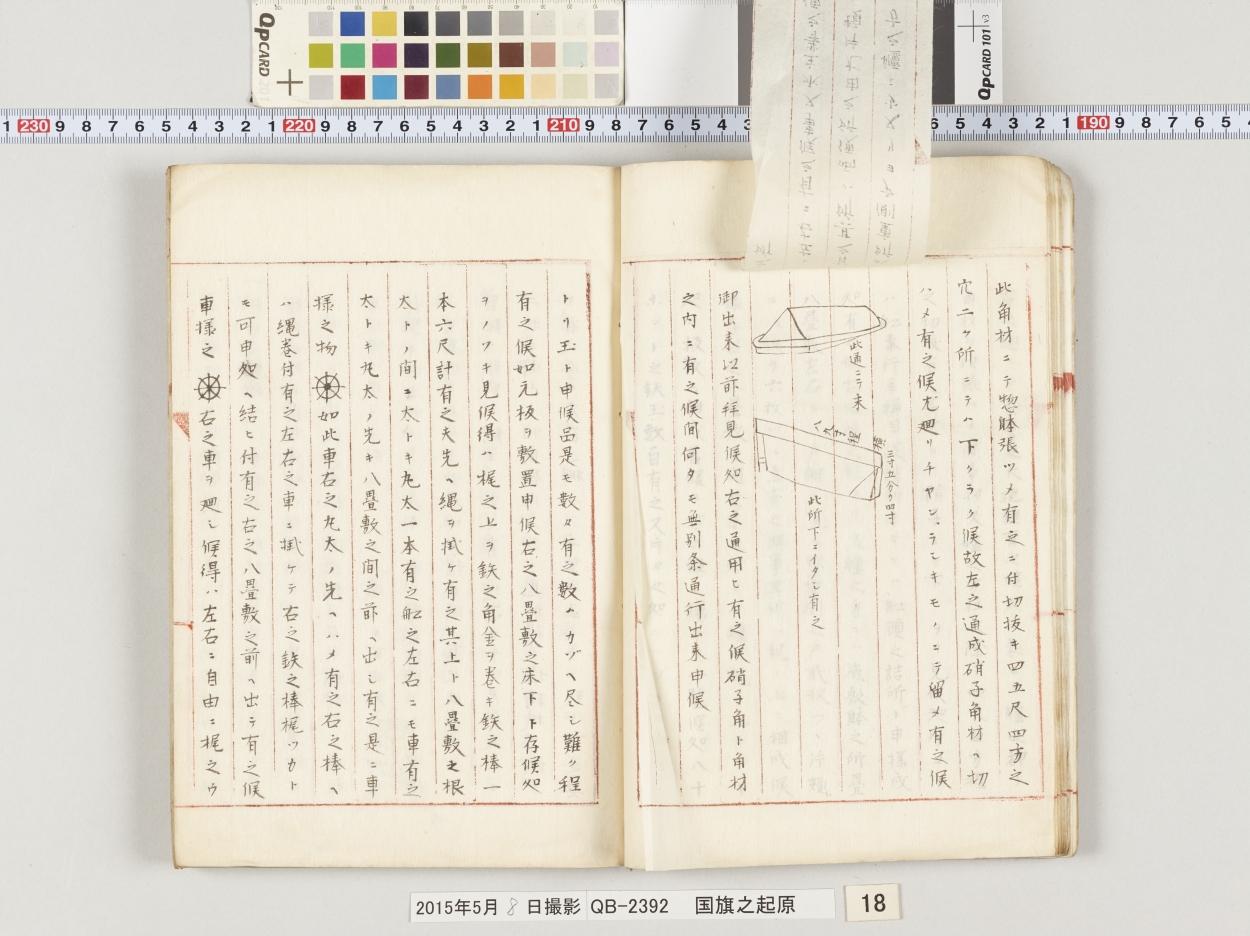 此角材ニテ惣躰張ツメ有之ニ付切抜キ四五尺四方之
穴二ケ所ニテハ下クラク候故左之通成硝子角材ヘ切
ハメ有之候尤廻リチヤンランキモクニテ留メ有之候
此通ニテ末
八九寸程
横
三寸五分ゟ四寸
此所下ニイタシ有之
御出来以前拝見候処右之通用ヒ有之候硝子角ト角材
之内ニ有之候間何タモ無別条通行出来申候
トリ玉ト申候品是モ数々有之数ヘカゾヘ尽シ難ク程
有之候如元板ヲ敷置申候右之八畳敷之床下ト存候処
ヲノゾキ見候得ハ梶之上ヲ鉄之角金ヲ巻キ鉄之棒一
本六尺計有之夫先ヘ縄ヲ掛ケ有之其上ト八畳敷之根
太トノ間ニ太トキ丸太一本有之舩之左右ニモ車有之
太トキ丸太ノ先キ八畳敷之間之前ヘ出シ有之是ニ車
様之物 如此車右之丸太ノ先ヘハメ有之右之棒ヘ
ハ縄巻付有之左右之車ニ掛ケテ右之鉄之棒梶ツカト
モ可申処ヘ結ヒ付有之右之八畳敷之前ヘ出テ有之候
車様之 右之車ヲ廻シ候得ハ左右ニ自由ニ梶之ウ
2015年5月8日撮影 QB-2392 国旗之起原
18
QPCARD 101 v3
QPCARD
1 230 9 8 7 6 5 4 3 2 1 220 9 8 7 6 5 4 3 2 1 210 9 8 7 6 5 4 3
6 5 4 3 2 1 190 9 8 7 6 5